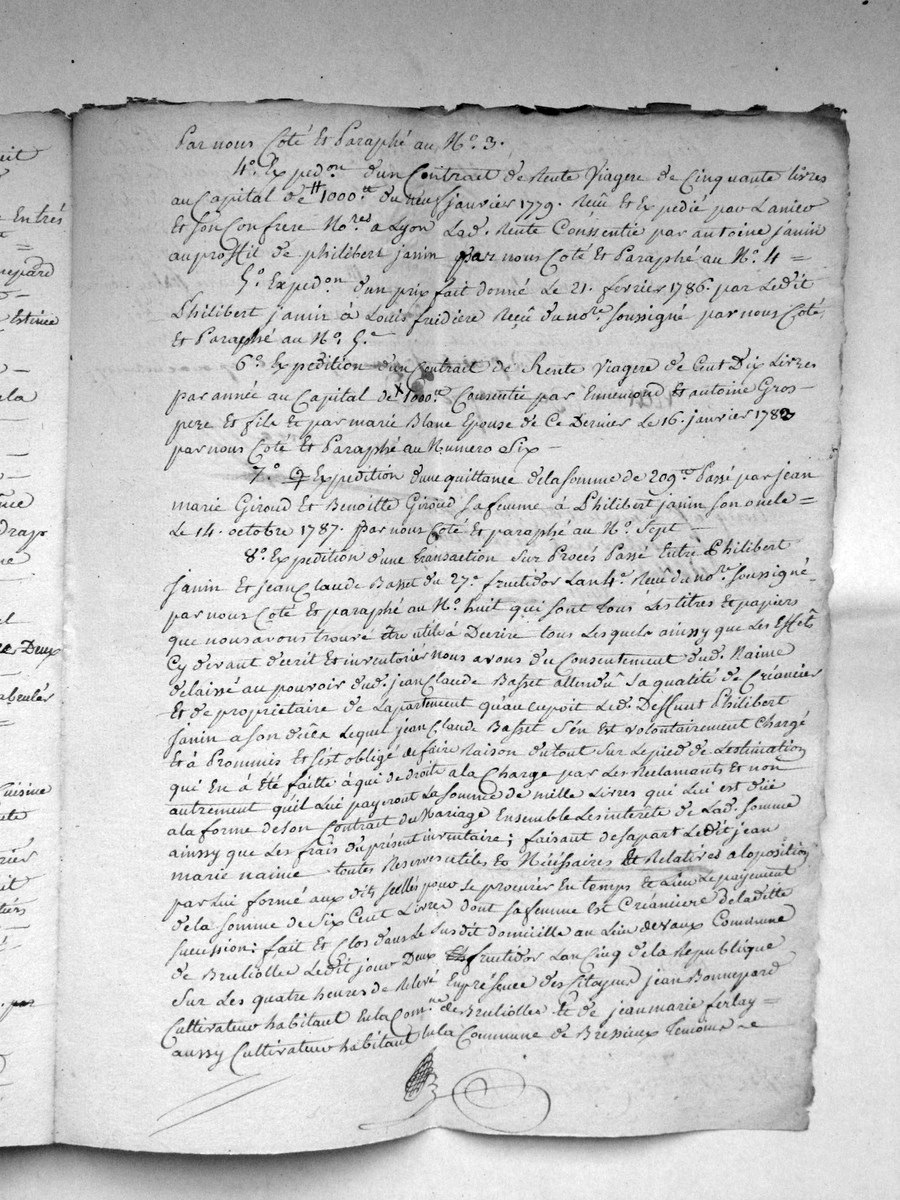 uit
Entrés
=
nepard
Estinée
la
nce
drap
ne
el
Deux
abrulés
Cuisine
ete
rier
uit
tiers
par
Par nous Coté Et Paraphé au No. 3.
4o. Expedon. d'un Contrat de Rente Viagere de Cinquante livres
au Capital de 1000tt du neuf janvier 1779. Reçu Et Expédié par Lanier
Et son Confrere Nores a Lyon Lad. Rente Conssentie par antoine janin
au proffit de philibert janin par nous Coté Et Paraphé au No. 4 =
5o. Expedon d'un prix fait donné Le 21. fevrier 1786. par Ledit
Philibert janin à Louis fridiere Reçû du nore. soussigné par nous Coté
et Paraphé au No. 5.e
6o. Expédition d'un Contrat de Rente Viagere de Cent Dix Livres
par année au Capital de 1000tt. Consentie par Ennemond Et antoine Gros -
pere Et fils Et par marie Blanc Epouse de Ce Dernier Le 16. janvier 1783
par nous Coté Et Paraphé au Numero Six -
7o. Expédition d'une quittance de la somme de 209tt Passé par jean
marie Giroud Et Benoitte Giroud sa femme à Philibert janin son oncle =
Le 14. octobre 1787. Par nous Coté Et paraphé au No. Sept
8o. Expedition d'une transaction sur Procès Passé Entre Philibert
Janin Et jean Claude Basset du 27e. fructidor Lan 4e. Recu du nore. soussigné -
par nous Coté Et paraphé au No. huit qui sont tous Les titres Et papiers
que nous avons trouvé être utile à Decrire tous Lesquels ainssy que Les Effets
Cy devant décrit Et inventoriés nous avons du Consentement dud. Naime
délaissé au pouvoir dud. jean Claude Basset attendû Sa qualité de Créancier
Et de propriétaire de L'apartement qu'aucupoit Led. Deffunt Philibert
Janin a son décès Lequel jean Claude Basset S'en Est volontairement Chargé
Et à Prommis Et s'est obligé de faire Raison du tout Sur Le pied de L'estimation
qui En à Eté faitte à qui de droite a la Charge par Les Reclamants Et non
autrement qu'il Lui payeront La somme de mille Livres qui Lui est düe
a la forme de son Contrat du Mariage Ensemble Les interêts de Lad. Somme
ainssy que Les frais du présent inventaire; faisant de sa part Ledit jean
marie naime toutes Reserves utiles Et Nécéssaires Et Relatives a loposition
par Lui formé aux dits scellés pour se procurér En temps Et Lieu Le payement
de la somme de Six Cent Livres dont sa femme Est Créanciere de laditte
succession; fait Et Clos dans Le susdit domicille au Lieu de vaux Commune
de Brulliolle Ledit jour Deux fructidor L'an Cinq de la Republique
Sur Les quatre heures de Relvé En présence des Citoyens jean Bonnepard
Cultivateur habitant En la Comne. de Bruliolle Et de jean marie ferlay =
aussy Cultivateur habitant En la Commune de Bressieux temoins